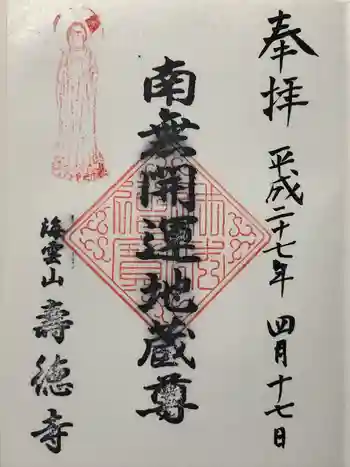 奉拝
平成二十七年 四月十七日
南無開運地蔵尊
海雲山
壽徳寺